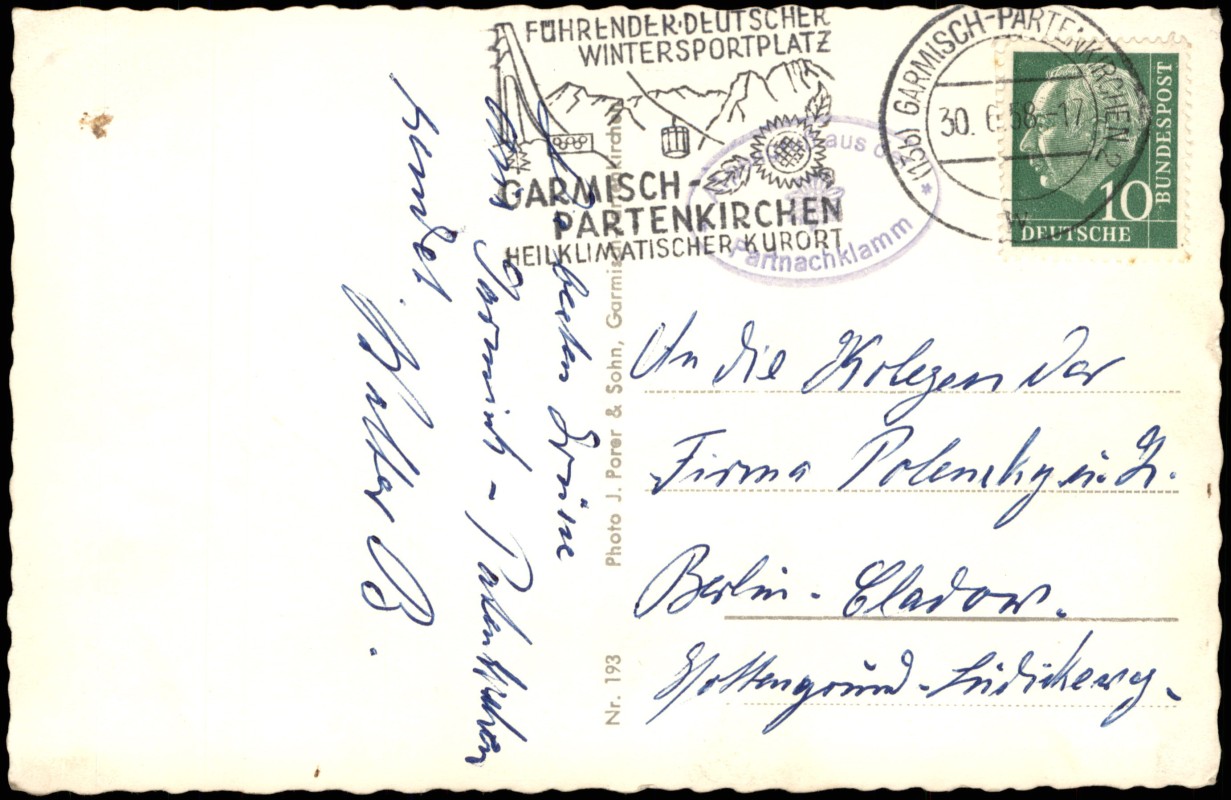 FÜHRENDER·DEUTSCHER
WINTERSPORTPLATZ
GARMISCH-
PARTENKIRCHEN
HEILKLIMATISCHER KURORT
(13b) GARMISCH-PARTENKIRCHEN 2
30. 6. 58.-17
w
aus d.
Partnachklamm
BUNDESPOST
10
DEUTSCHE
besten Grüße
von Garmisch-
sendet
Walter B.
Photo J. Porer & Sohn, Garmisch-Partenkirchen
Nr. 193
An die Kolegen der
Firma Polensky u. Z.
Berlin-Cladow.
Hottengrund-Lüdickeweg.